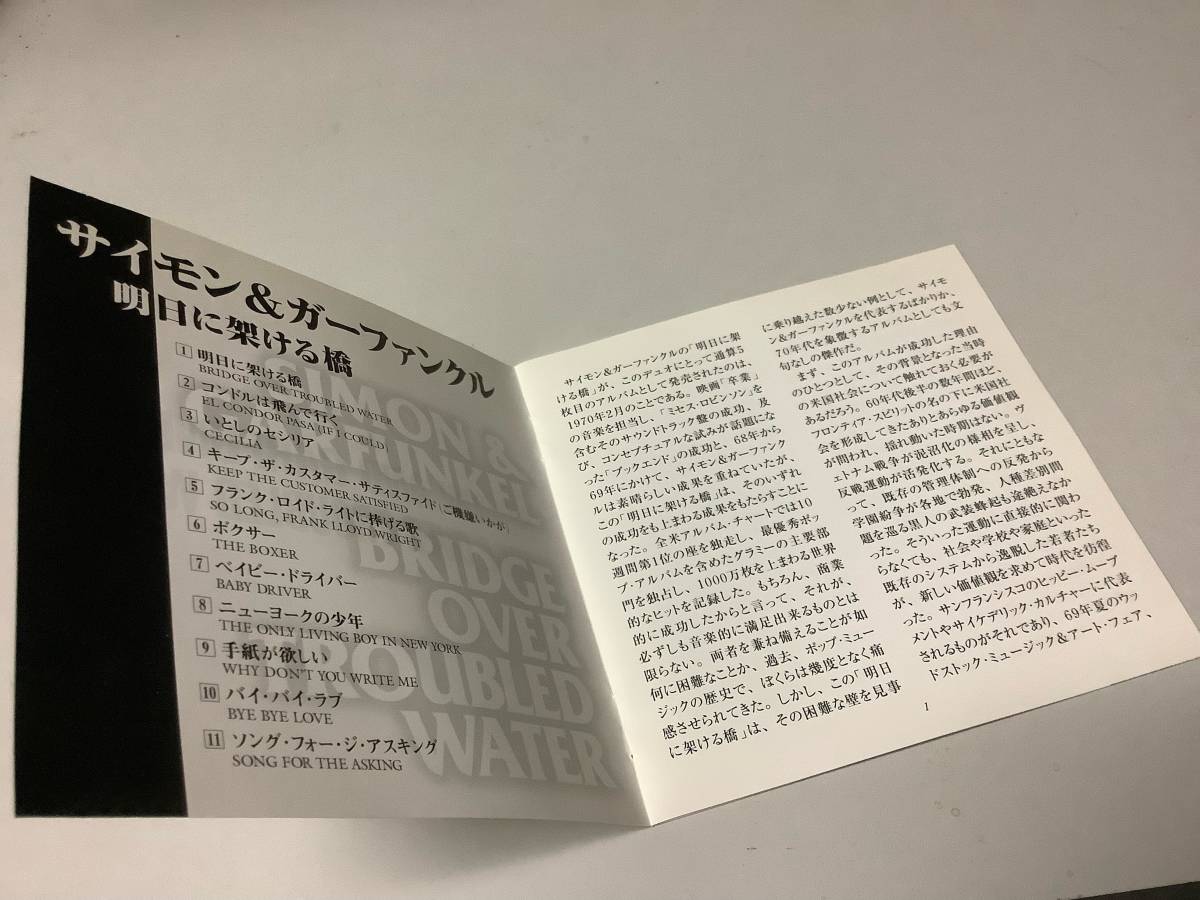 サイモン&ガーファンクル
明日に架ける橋
1 明日に架ける橋
BRIDGE OVER TROUBLED WATER
2 コンドルは飛んで行く
EL CONDOR PASA (IF I COULD)
3 いとしのセシリア
CECILIA
4 キープ・ザ・カスタマー・サティスファイド(ご機嫌いかが)
KEEP THE CUSTOMER SATISFIED
5 フランク・ロイド・ライトに捧げる歌
SO LONG, FRANK LLOYD WRIGHT
6 ボクサー
THE BOXER
7 ベイビー・ドライバー
BABY DRIVER
8 ニューヨークの少年
THE ONLY LIVING BOY IN NEW YORK
9 手紙が欲しい
WHY DON'T YOU WRITE ME
10 バイ・バイ・ラブ
BYE BYE LOVE
11 ソング・フォー・ジ・アスキング
SONG FOR THE ASKING
SIMON &
GARFUNKEL
BRIDGE
OVER
TROUBLED
WATER
サイモン&ガーファンクルの「明日に架
ける橋」が、このデュオにとって通算5
枚目のアルバムとして発売されたのは、
1970年2月のことである。映画「卒業」
の音楽を担当し、「ミセス・ロビンソン」を
含むそのサウンドトラック盤の成功、及
び、コンセプチュアルな試みが話題にな
った「ブックエンド」の成功と、68年から
69年にかけて、サイモン&ガーファンク
ルは素晴らしい成果を重ねていたが、
この「明日に架ける橋」は、そのいずれ
の成功をも上まわる成果をもたらすことに
なった。全米アルバム・チャートでは10
週間第1位の座を独走し、最優秀ポッ
プ・アルバムを含めたグラミーの主要部
門を独占し、1000万枚を上まわる世界
的なヒットを記録した。もちろん、商業
的に成功したからと言って、それが、
必ずしも音楽的に満足出来るものとは
限らない。両者を兼ね備えることが如
何に困難なことか、過去、ポップ・ミュー
ジックの歴史で、ぼくらは幾度となく痛
感させられてきた。しかし、この「明日
に架ける橋」は、その困難な壁を見事
に乗り越えた数少ない例として、サイモ
ン&ガーファンクルを代表するばかりか、
70年代を象徴するアルバムとしても文
句なしの傑作だ。
まず、このアルバムが成功した理由
のひとつとして、その背景となった当時
の米国社会について触れておく必要が
あるだろう。60年代後半の数年間ほど、
フロンティア・スピリットの名の下に米国社
会を形成してきたありとあらゆる価値観
が問われ、揺れ動いた時期はない。ヴ
ェトナム戦争が泥沼化の様相を呈し、
反戦運動が活発化する。それにともな
って、既存の管理体制への反発から
学園紛争が各地で勃発、人種差別問
題を巡る黒人の武装蜂起も途絶えなか
った。そういった運動に直接的に関わ
らなくても、社会や学校や家庭といった
既存のシステムから逸脱した若者たち
が、新しい価値観を求めて時代を彷徨
った。サンフランシスコのヒッピー・ムーブ
メントやサイケデリック・カルチャーに代表
されるものがそれであり、69年夏のウッ
ドストック・ミュージック&アート・フェア、
1